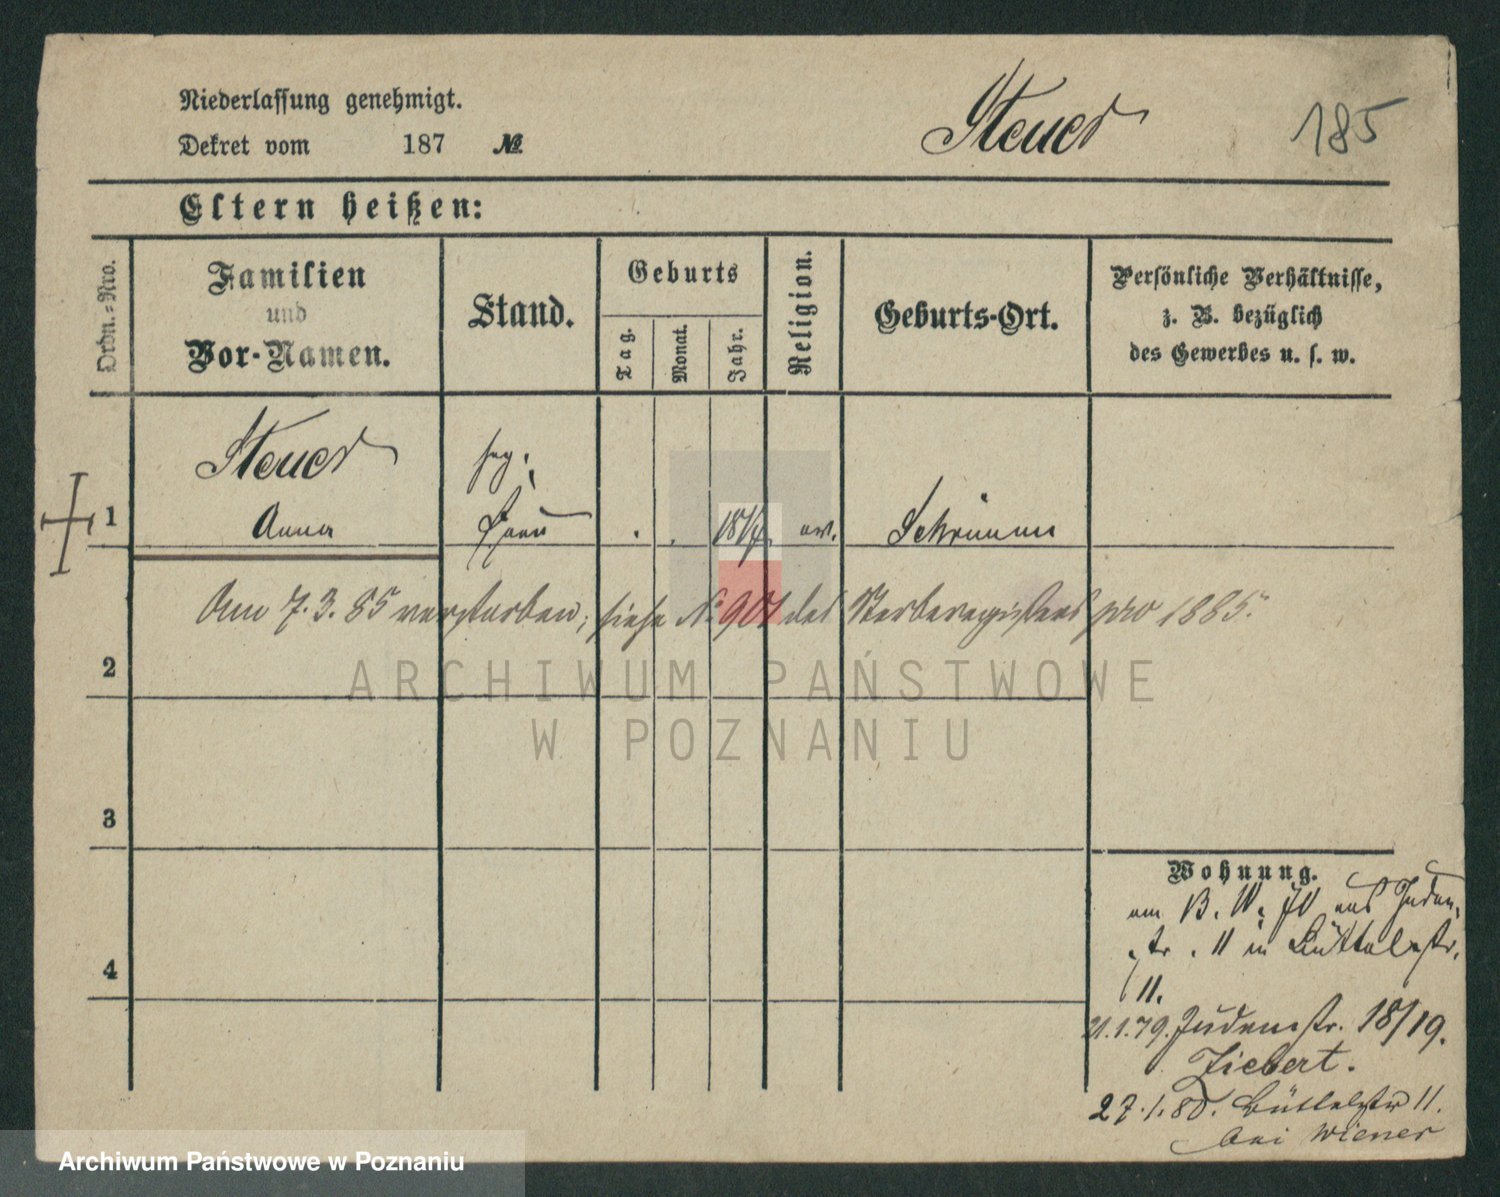 Niederlassung genehmigt.
Dekret vom 187 №
Steuer 185
Eltern heißen:
Ordn.-Nro.
Familien
und
Vor-Namen.
Stand.
Geburts
Tag.
Monat.
Jahr.
Religion.
Geburts-Ort.
Persönliche Verhältnisse,
z. B. bezüglich
des Gewerbes u. s. w.
Steuer
1 Anna Frau Schrimm
Am 7.3.85 verstorben, siehe № 901 des Sterberegisters pro 1885.
2
3
4
ARCHIWUM PAŃSTWOWE
W POZNANIU
Wohnung.
aus Juden-
str. 11 in Büttelstr.
11.
21.1.79. Judenstr. 18/19.
Ziebert.
27.1.80. Büttelstr 11.
bei Wiener
Archiwum Państwowe w Poznaniu